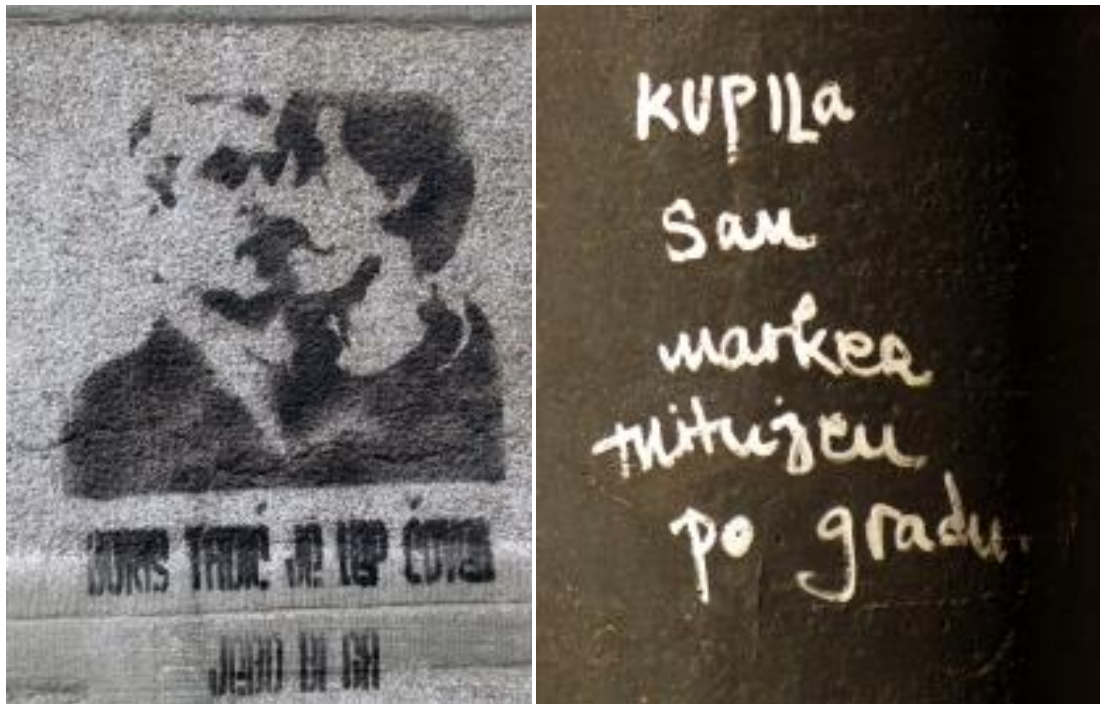 BORIS TADIĆ Je LEP ČOVEK
JEBO BI GA
KUPILa
San
markea
mitujeu
po gradu.